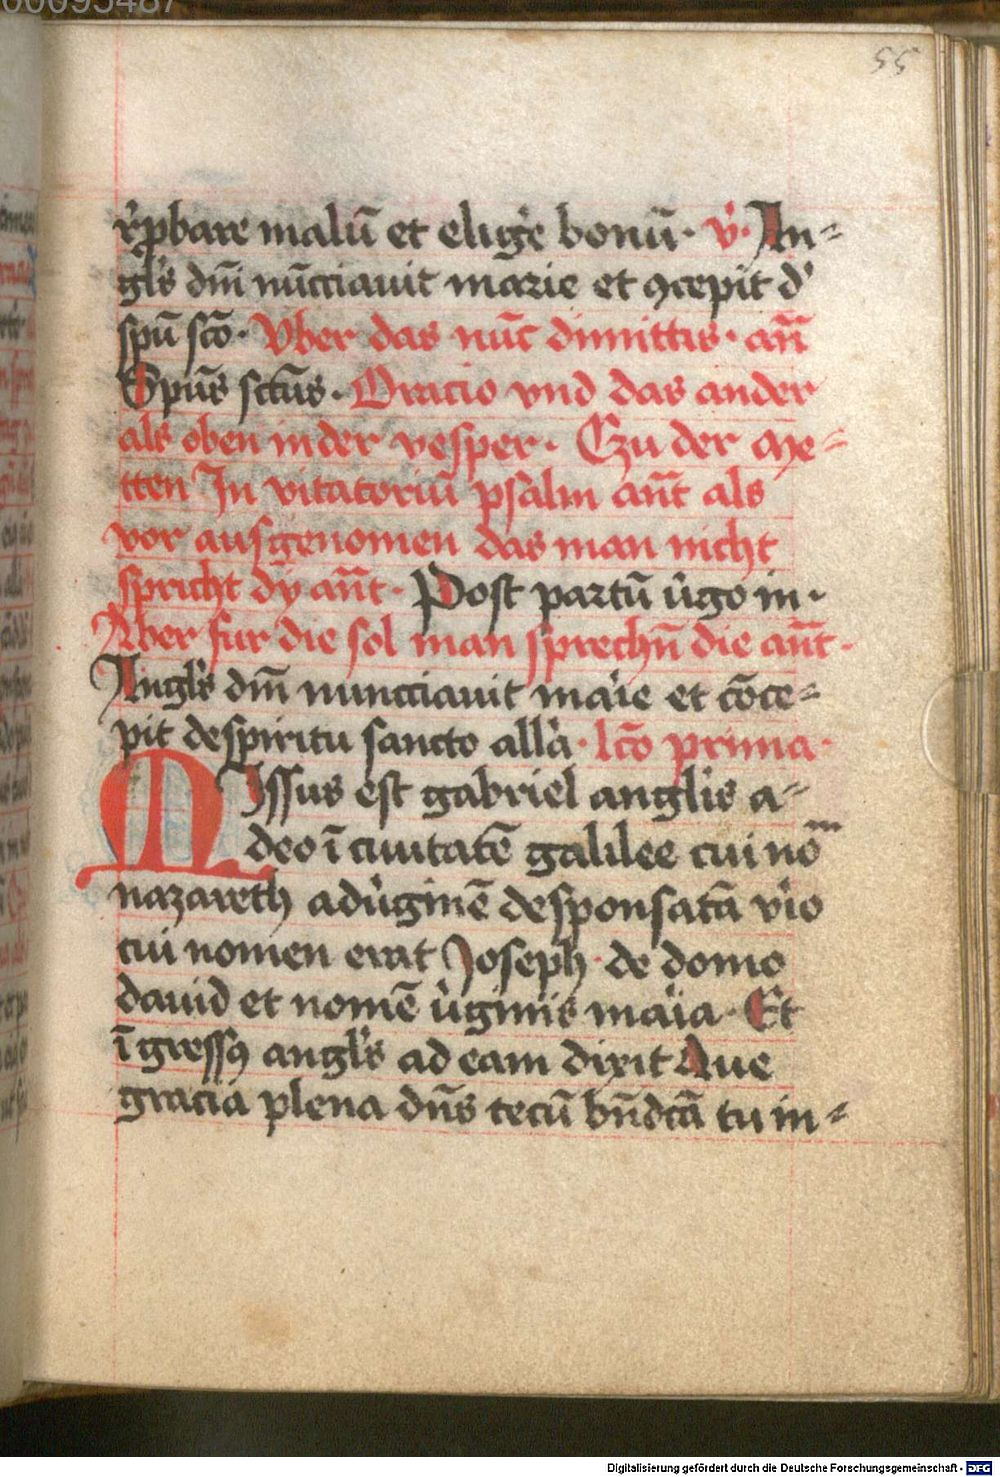 00095487
55
r̓pbare malū et elig̓e bonū · v̓ · An-
gl̓s dn̄i nūcciauit marie et ꝯcepit d̓
spū sc̄o · Vber das nūc dimittis · an̄
Spūs sctūs · Oracio vnd das ander
als oben in der vesper · Czu der me-
tten In vitatoriū psalm an̄t als
vor ausgenomen das man nicht
spricht dÿ an̄t · Post partū v̓go in ·
Aber fur die sol man sprechn̄ die an̄t ·
Angl̓s dn̄i nuncciauit mar̓ie et cōce-
pit de spiritu sancto all̓a · lc̄o prima ·
MIssus est gabriel anglis a-
deo ī ciuitatē galilee cui no̅ᵐ
nazareth ad v̓ginē desponsatā vi̓o
cui nomen erat Joseph · de domo
dauid et nomē v̓ginis mar̓ia · Et
īgressꝯ angl̓s ad eam dixit Aue
gracia plena dn̄s tecū bn̄dctā tu in-
Digitalisierung gefördert durch die Deutsche Forschungsgemeinschaft - DFG